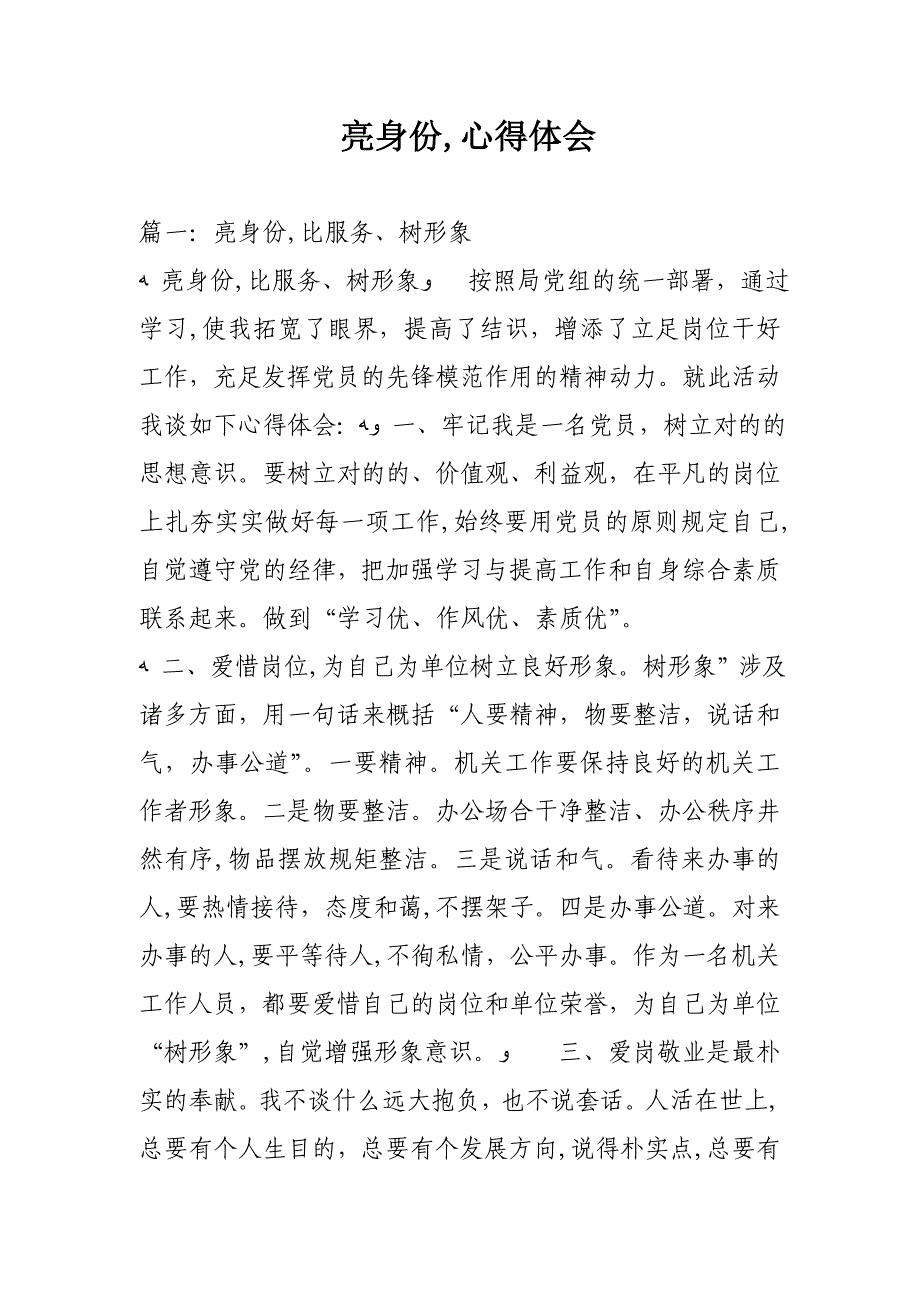 亮身份,心得体会
篇一: 亮身份,比服务、树形象
ﻪ 亮身份,比服务、树形象ﻭ 按照局党组的统一部署，通过
学习,使我拓宽了眼界，提高了结识，增添了立足岗位干好
工作，充足发挥党员的先锋模范作用的精神动力。就此活动
我谈如下心得体会: ﻭﻪ 一、牢记我是一名党员，树立对的的
思想意识。要树立对的的、价值观、利益观，在平凡的岗位
上扎夯实实做好每一项工作,始终要用党员的原则规定自己,
自觉遵守党的经律，把加强学习与提高工作和自身综合素质
联系起来。做到“学习优、作风优、素质优”。
ﻪ 二、爱惜岗位,为自己为单位树立良好形象。树形象”涉及
诸多方面，用一句话来概括“人要精神，物要整洁，说话和
气，办事公道”。一要精神。机关工作要保持良好的机关工
作者形象。二是物要整洁。办公场合干净整洁、办公秩序井
然有序,物品摆放规矩整洁。三是说话和气。看待来办事的
人,要热情接待，态度和蔼,不摆架子。四是办事公道。对来
办事的人,要平等待人,不徇私情，公平办事。作为一名机关
工作人员，都要爱惜自己的岗位和单位荣誉，为自己为单位
“树形象”,自觉增强形象意识。ﻭ 三、爱岗敬业是最朴
实的奉献。我不谈什么远大抱负，也不说套话。人活在世上,
总要有个人生目的，总要有个发展方向,说得朴实点,总要有